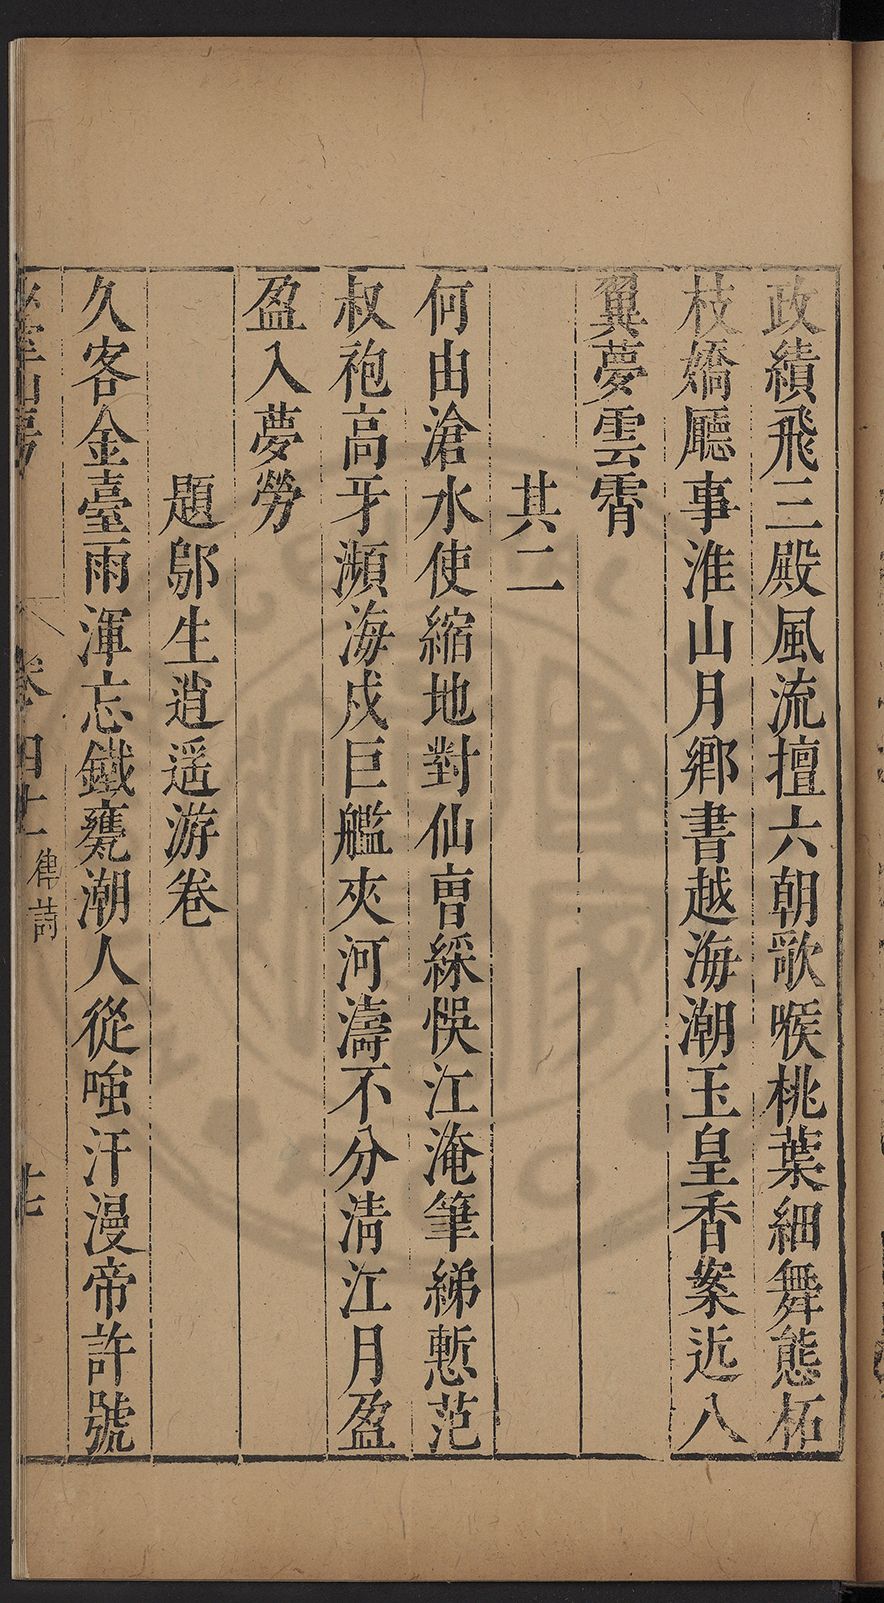 政績飛三殿風流擅六朝歌喉桃葉細舞態柘
枝嬌廳事淮山月鄉書越海潮玉皇香案近八
翼夢雲霄
其二
何由滄水使縮地對仙曹綵悞江淹筆綈慙范
叔袍高牙瀕海戍巨艦夾河濤不分清江月盈
盈入夢勞
題鄔生逍遥游卷
久客金臺雨渾忘鐵甕潮人從嗤汗漫帝許號
卷四十 律詩